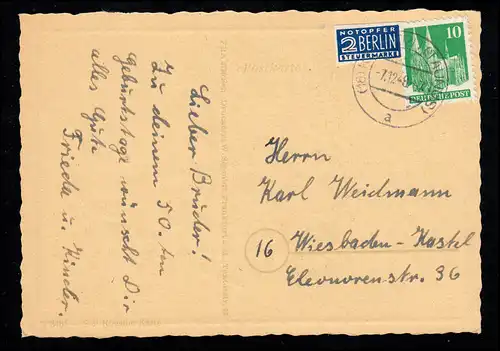 NOTOPFER
2 BERLIN
STEUERMARKE
10
DEUTSCHE POST
-7.12.48
a
Lieber Bruder!
Zu deinem 50.ten
Geburtstage wünscht Dir
alles Gute
Friede u. Kinder.
Herrn
Karl Weidmann
16 Wiesbaden-Kastel
Eleonorenstr. 36